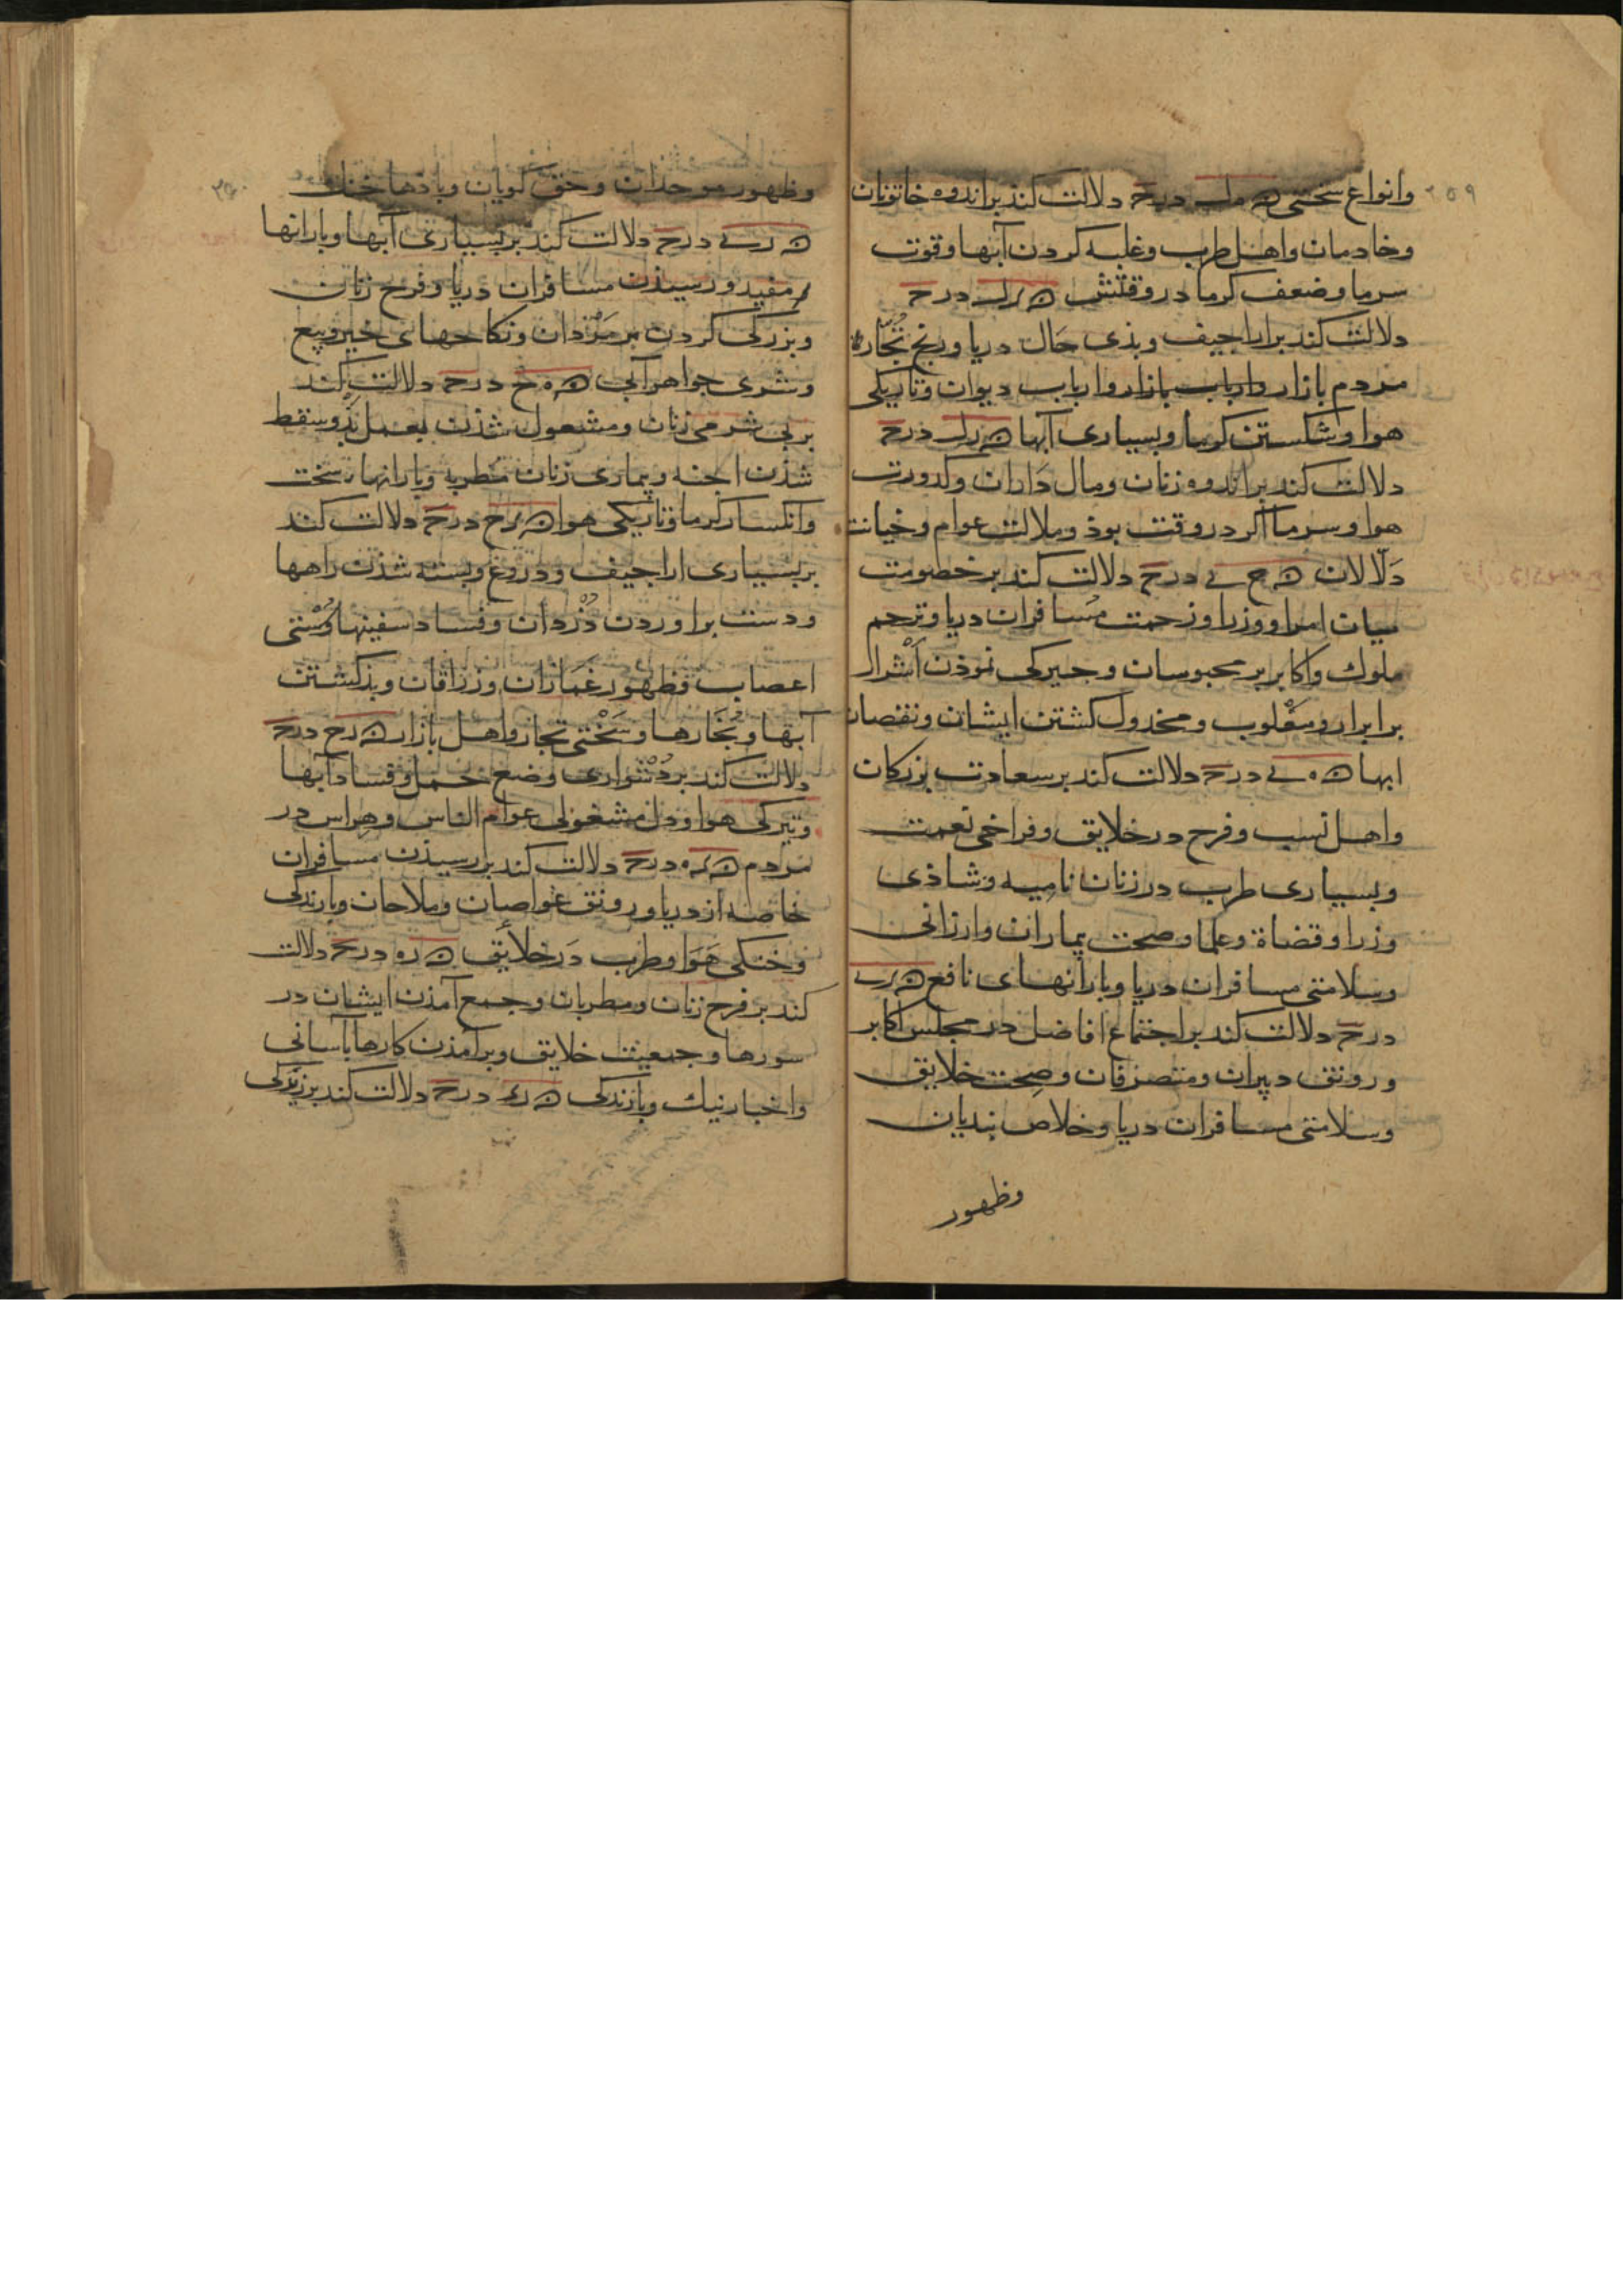 ۲۵۹
وانواع سختی ه ل درح دلالت کند بر اندوه خاتونان
وخادمان واهل طرب وغلبه کردن آبها وقوت
سرما وضعف کرما در وقتش ه درح
دلالت کند بر اراجیف وبذی حال دریا ورنج تُجّار
مردم بازار وارباب بازار وارباب دیوان وتاریکی
هوا وشکستن کرما وبسیاری آبها ه درح
دلالت کند بر اندوه زنان ومال داران وکدورت
هوا وسرما اکر در وقت بوذ وملالت عوام وخیانت
دلالان ه ح ے درح دلالت کند بر خصومت
میان امرا ووزرا وزحمت مسافران دریا وترحم
ملوک واکابر بر محبوسان وجیرکی نموذن اشرار
بر ابرار ومغلوب ومخذول کشتن ایشان ونقصان
ابها ه ه ے درح دلالت کند بر سعادت بزرکان
واهل نسب وفرح در خلایق وفراخی نعمت
وبسیاری طرب در زنان نامیه وشاذی
وزرا وقضاة وعلما وصحت بیماران وارزانی
وسلامتی مسافران دریا وبارانهای نافع ه
درح دلالت کند بر اجتماع افاضل در مجلس اکابر
ورونق دبیران ومتصرفان وصحت خلایق
وسلامتی مسافران دریا وخلاص بندیان
وظهور
۲۶۰
وظهور موحدان وحق کویان وباذها خنک
ه ر ے درح دلالت کند بر بسیاری آبها وبارانها
مفید ورسیذن مسافران دریا وفرح زنان
وبزرکی کردن بر مردان ونکاحهای خیر وبیع
وشری جواهر آبی ه ه ح درح دلالت کند
بر بی شرمی زنان ومشغول شذن بعمل بد وسقط
شذن اجنه وبیماری زنان مطربه وبارانها سخت
وانکسار کرما وتاریکی هوا ه ح درح دلالت کند
بر بسیاری اراجیف ودروغ وبسته شذن راهها
ودست براوردن دُزدان وفساد سفینها وسُستی
اعصاب وظهور غمازان وزراقان وبذ کشتن
آبها وبُخارها وسَختی تجار واهل بازار ه رح درح
دلالت کند بر دُشواری وضع حمل وفساد آبها
وتیرکی هوا ودل مشغولی عوام الناس وهراس در
مردم ه ه درح دلالت کند بر رسیذن مسافران
خاصه از دریا ورونق غواصان وملاحان وبارندکی
وخنکی هَوا وطرب دَر خلائق ه ر ه درح دلالت
کند بر فرح زنان ومطربان وجمع آمذن ایشان در
سورها وجمعیت خلایق وبرآمذن کارها بآسانی
واخبار نیک وبارندکی ه درح دلالت کند بر زیرکی